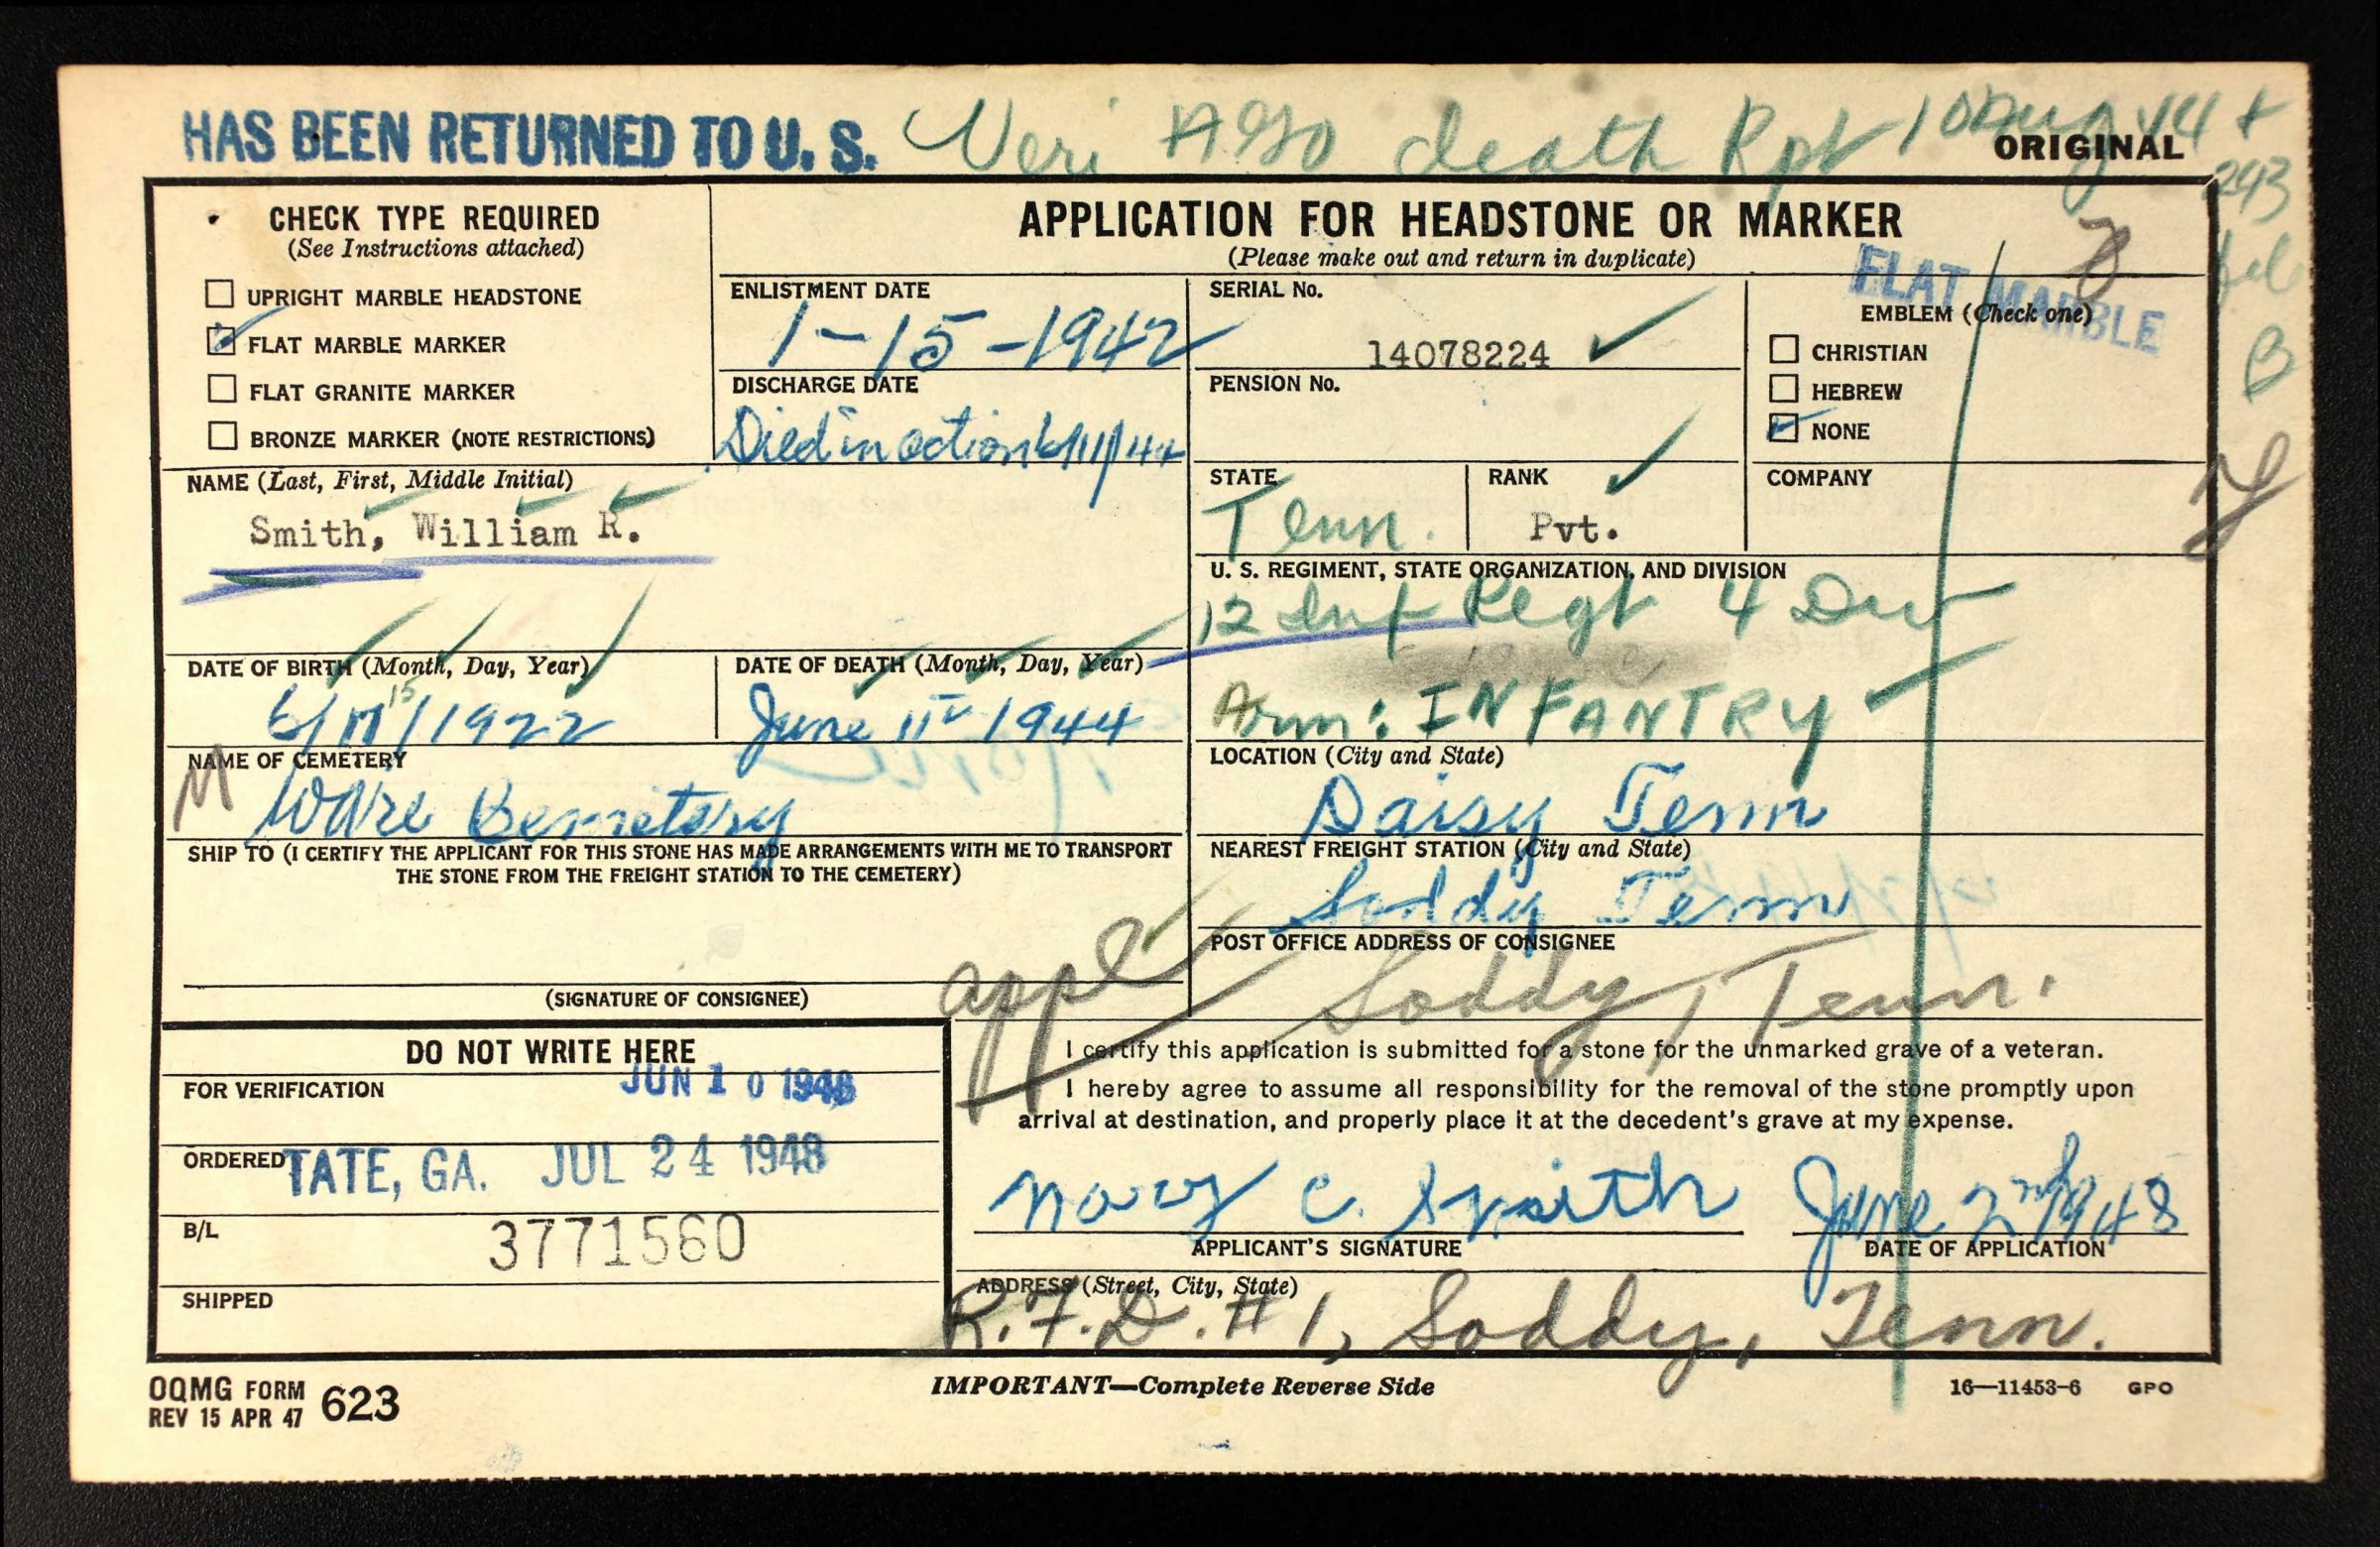 HAS BEEN RETURNED TO U. S. Veri AGO death Rpt 10 Aug 44 +
ORIGINAL
293
file
B
CHECK TYPE REQUIRED
(See Instructions attached)
UPRIGHT MARBLE HEADSTONE
FLAT MARBLE MARKER
FLAT GRANITE MARKER
BRONZE MARKER (NOTE RESTRICTIONS)
APPLICATION FOR HEADSTONE OR MARKER
(Please make out and return in duplicate)
FLAT MARBLE
ENLISTMENT DATE
1-15-1942
DISCHARGE DATE
Died in action 6/11/44
SERIAL No.
14078224
PENSION No.
EMBLEM (Check one)
CHRISTIAN
HEBREW
NONE
NAME (Last, First, Middle Initial)
Smith, William R.
STATE
Tenn.
RANK
Pvt.
COMPANY
U. S. REGIMENT, STATE ORGANIZATION, AND DIVISION
12 Inf Regt 4 Div
Arm: INFANTRY
DATE OF BIRTH (Month, Day, Year)
15
6/11/1922
DATE OF DEATH (Month, Day, Year)
June 11 1944
NAME OF CEMETERY
M Ware Cemetery
LOCATION (City and State)
Daisy Tenn
SHIP TO (I CERTIFY THE APPLICANT FOR THIS STONE HAS MADE ARRANGEMENTS WITH ME TO TRANSPORT
THE STONE FROM THE FREIGHT STATION TO THE CEMETERY)
NEAREST FREIGHT STATION (City and State)
Soddy Tenn
appl
(SIGNATURE OF CONSIGNEE)
POST OFFICE ADDRESS OF CONSIGNEE
Soddy, Tenn.
DO NOT WRITE HERE
FOR VERIFICATION JUN 10 1948
ORDERED TATE, GA. JUL 24 1948
B/L 3771560
SHIPPED
I certify this application is submitted for a stone for the unmarked grave of a veteran.
I hereby agree to assume all responsibility for the removal of the stone promptly upon
arrival at destination, and properly place it at the decedent's grave at my expense.
Mary C. Smith June 2nd 1948
APPLICANT'S SIGNATURE DATE OF APPLICATION
ADDRESS (Street, City, State)
R.F.D. #1, Soddy, Tenn.
OQMG FORM
REV 15 APR 47 623
IMPORTANT—Complete Reverse Side
16—11453-6 GPO